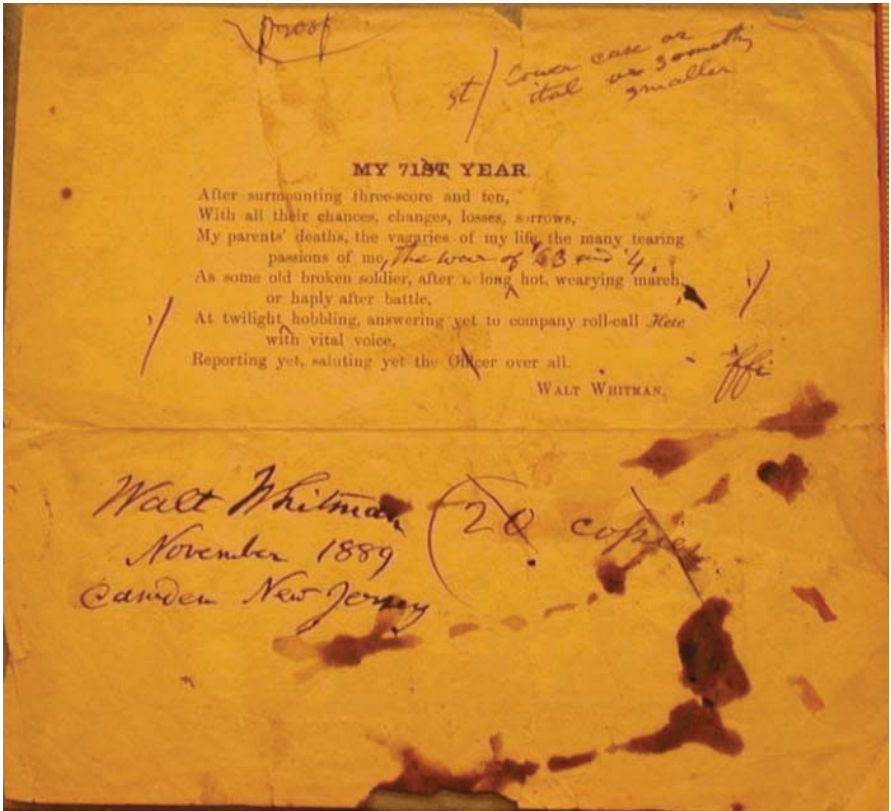 Proof
st/ Lower case or
ital or someth
smaller
MY 71ST YEAR.
After surmounting three-score and ten,
With all their chances, changes, losses, sorrows,
My parents' deaths, the vagaries of my life, the many tearing
passions of me, the war of '63 and '4,
As some old broken soldier, after a long hot, wearying march,
or haply after battle,
At twilight hobbling, answering yet to company roll-call Here
with vital voice,
Reporting yet, saluting yet the Officer over all.
WALT WHITMAN.
ffi
Walt Whitman
November 1889
Camden New Jersey
20 copies